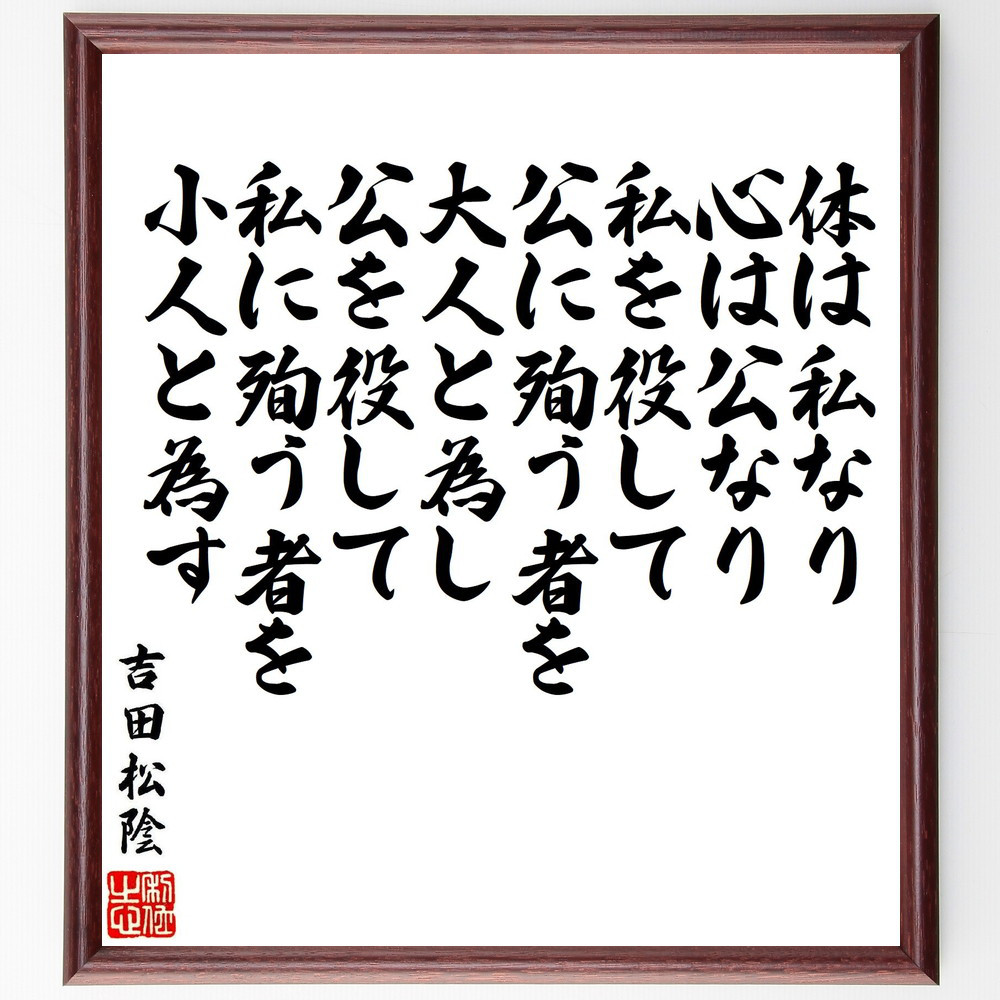 体は私なり
心は公なり
私を役して
公に殉う者を
大人と為し
公を役して
私に殉う者を
小人と為す
吉田松陰